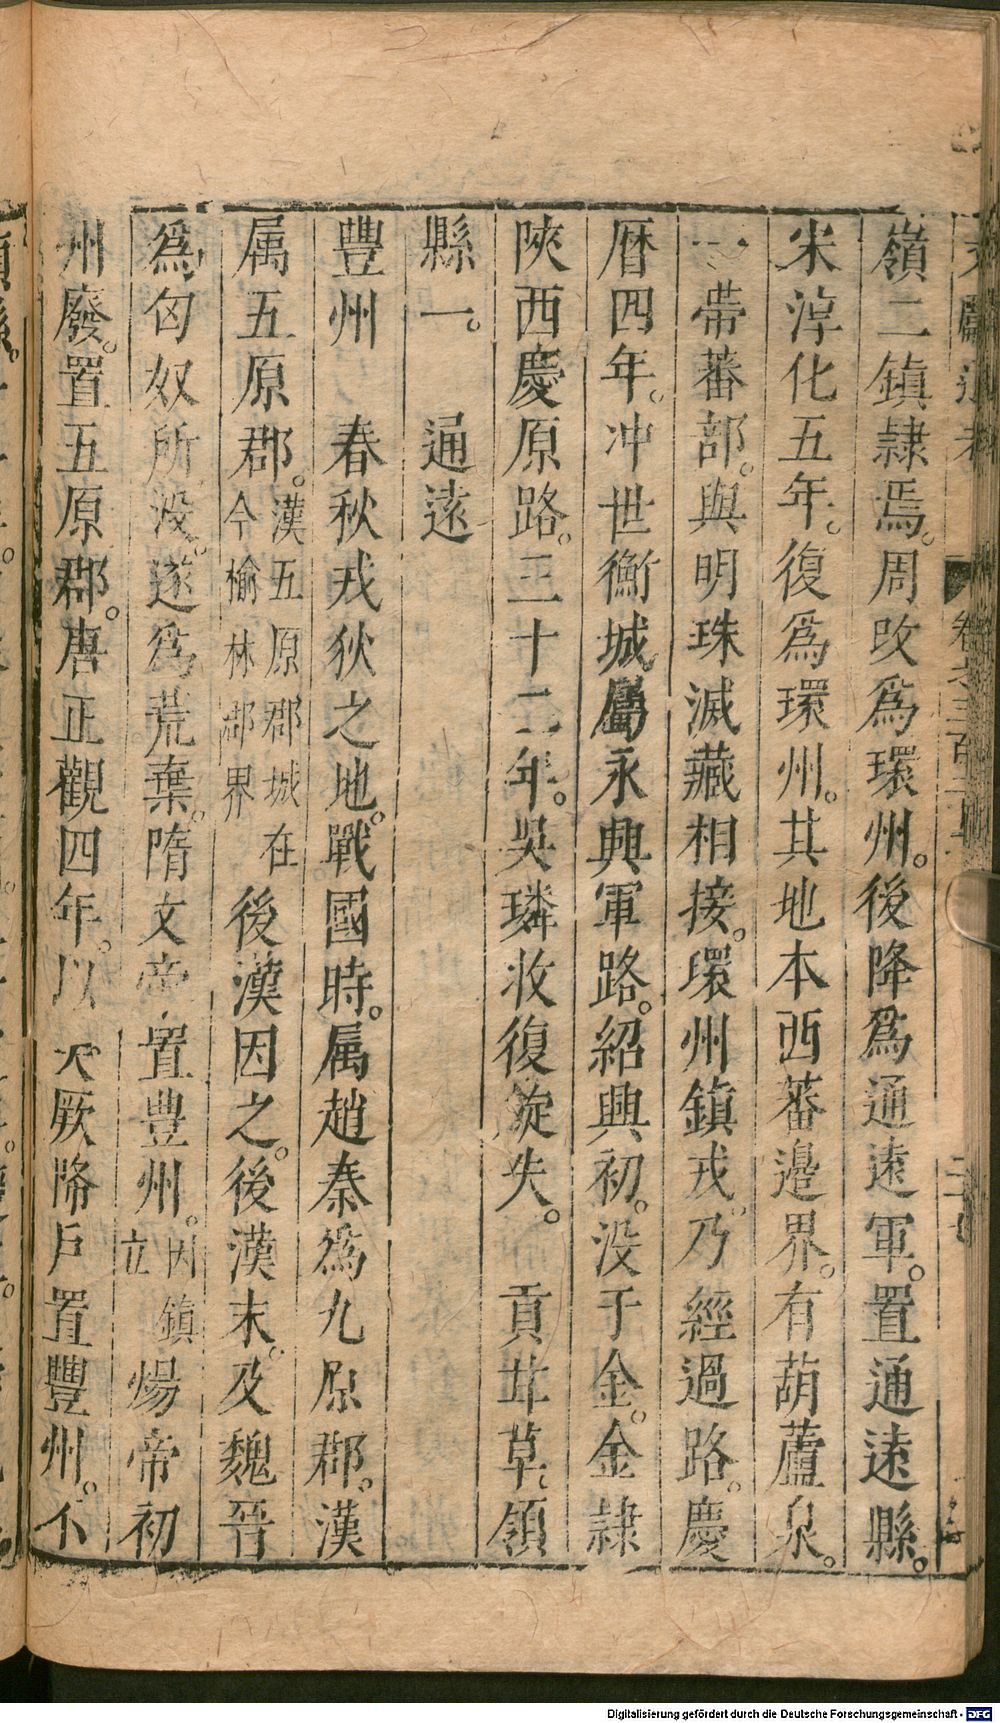 嶺二鎮隷焉。周攺爲環州。後降爲通遠軍。置通遠縣。
宋淳化五年。復爲環州。其地本西蕃邉界。有葫蘆泉。
一帶蕃部。與明珠滅藏相接。環州鎮戎。乃經過路。慶
暦四年。冲世衡城。屬永興軍路。紹興初。没于金。金隷
陝西慶原路。三十二年。吳璘收復。旋失。 貢耳草。領
縣一。 通遠
豐州 春秋戎狄之地。戰國時。属趙秦爲九原郡。漢
属五原郡。漢五原郡城在
今榆林郡界
後漢因之。後漢末。及魏晉
爲匈奴所没。遂爲荒棄。隋文帝置豊州。因鎮
立
煬帝初
州廢。置五原郡。唐正觀四年。以突厥降戸置豐州。不
文獻通考 卷之三百二十
Digitalisierung gefördert durch die Deutsche Forschungsgemeinschaft - DFG